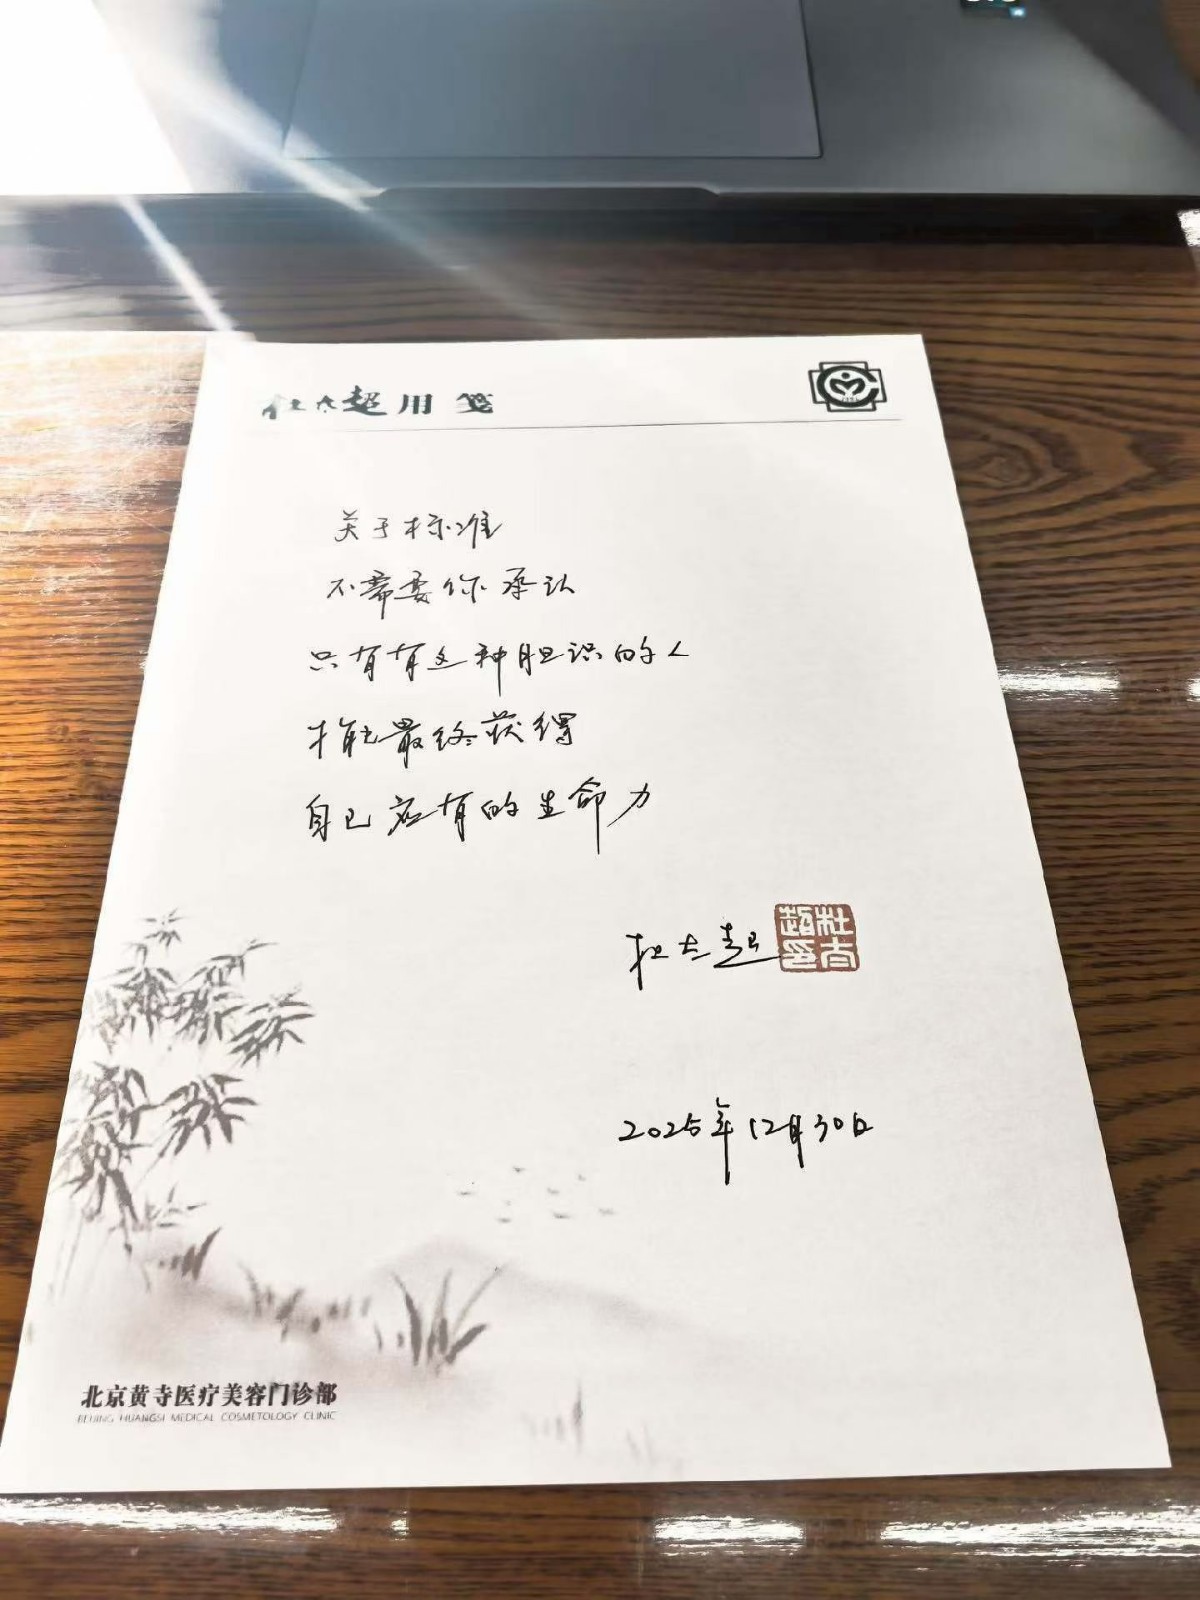 杜太超用笺
关于标准
不需要你承认
只有有这种胆识的人
才能最终获得
自己应有的生命力
杜太超
杜太超印
2025年12月30日
北京黄寺医疗美容门诊部
BEIJING HUANGSI MEDICAL COSMETOLOGY CLINIC